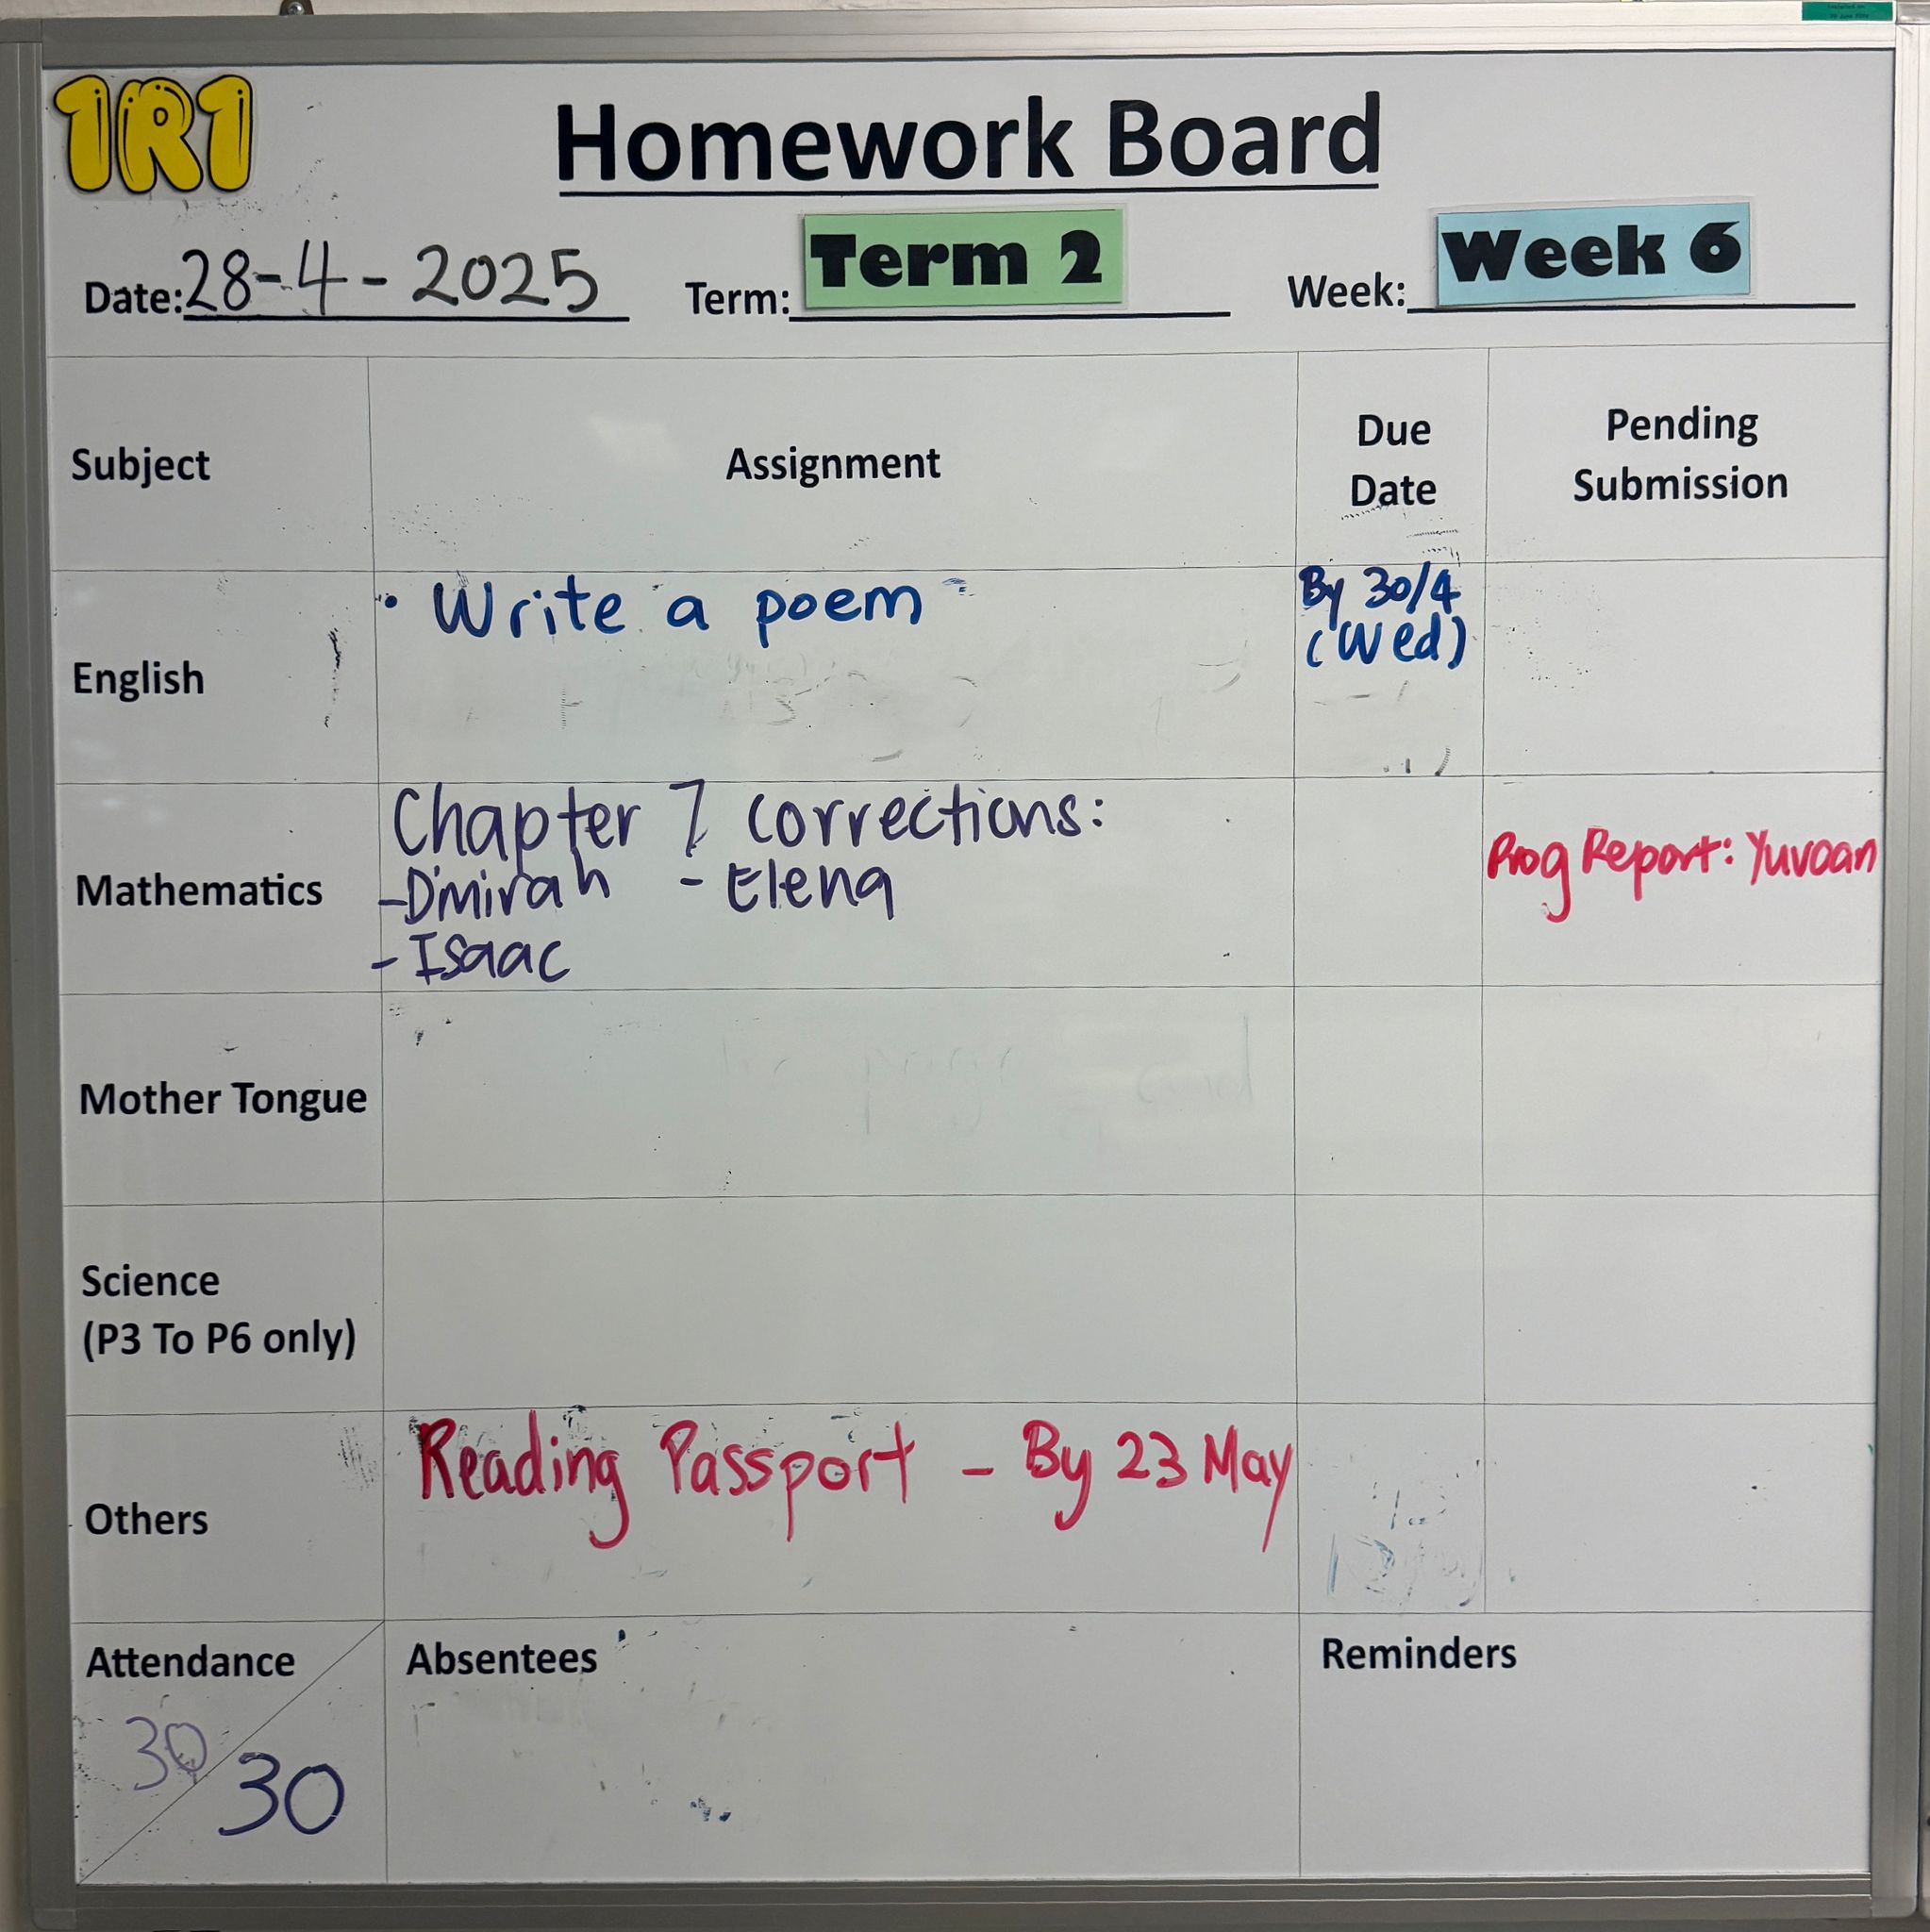 1R1
Homework Board
Date: 28-4-2025 Term: Term 2 Week: Week 6
Subject Assignment Due Date Pending Submission
English • Write a poem By 30/4 (Wed)
Mathematics Chapter 7 corrections:
-D'mirah - Elena
- Isaac
Prog Report: Yuvaan
Mother Tongue
Science
(P3 To P6 only)
Others Reading Passport - By 23 May
Attendance 30/30
Absentees
Reminders